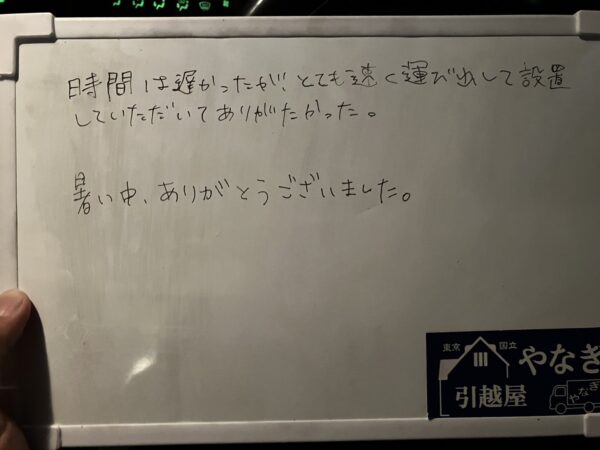 時間は遅かったが、とても速く運び出して設置
していただいてありがたかった。
暑い中、ありがとうございました。
東京 国立
やなぎ
引越屋
やなぎ